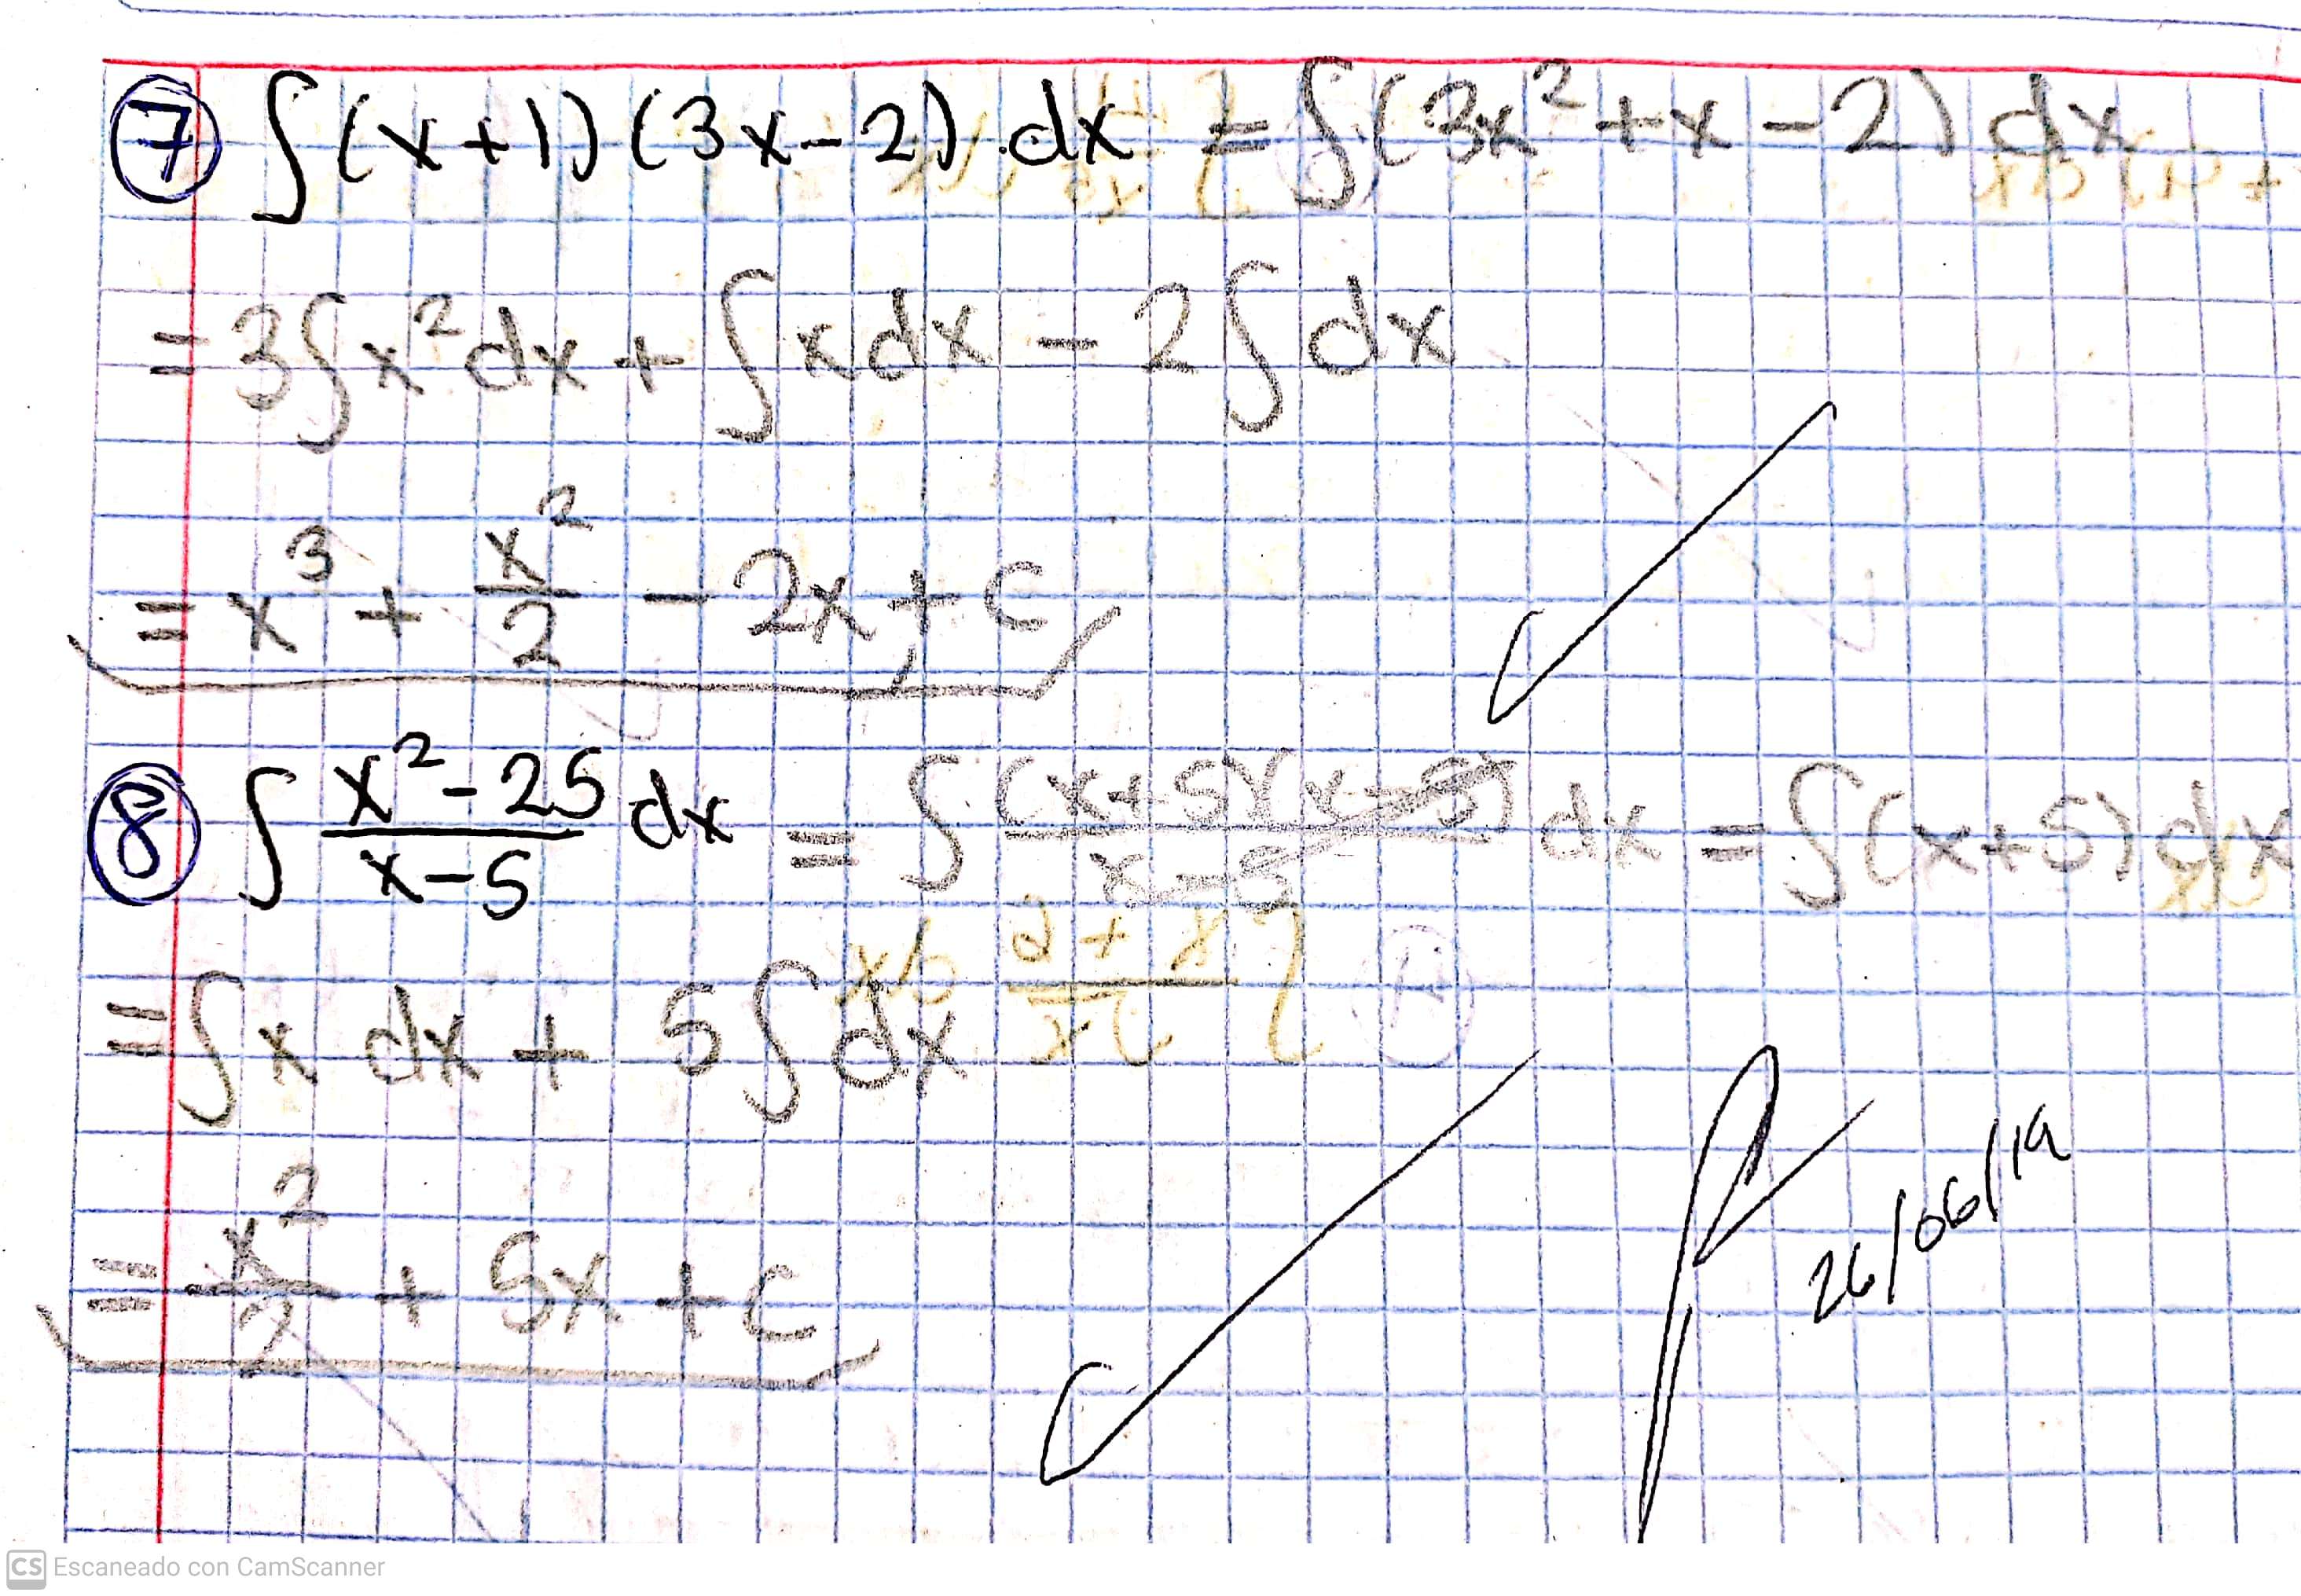 7 ∫(x+1)(3x-2) dx = ∫(3x²+x-2) dx
= 3∫x²dx + ∫xdx - 2∫dx
= x³ + x²/2 - 2x + c
8 ∫ x²-25/x-5 dx = ∫ (x+5)(x-5)/x-5 dx = ∫(x+5) dx
= ∫x dx + 5∫dx
= x²/2 + 5x + c
26/06/19
CS Escaneado con CamScanner